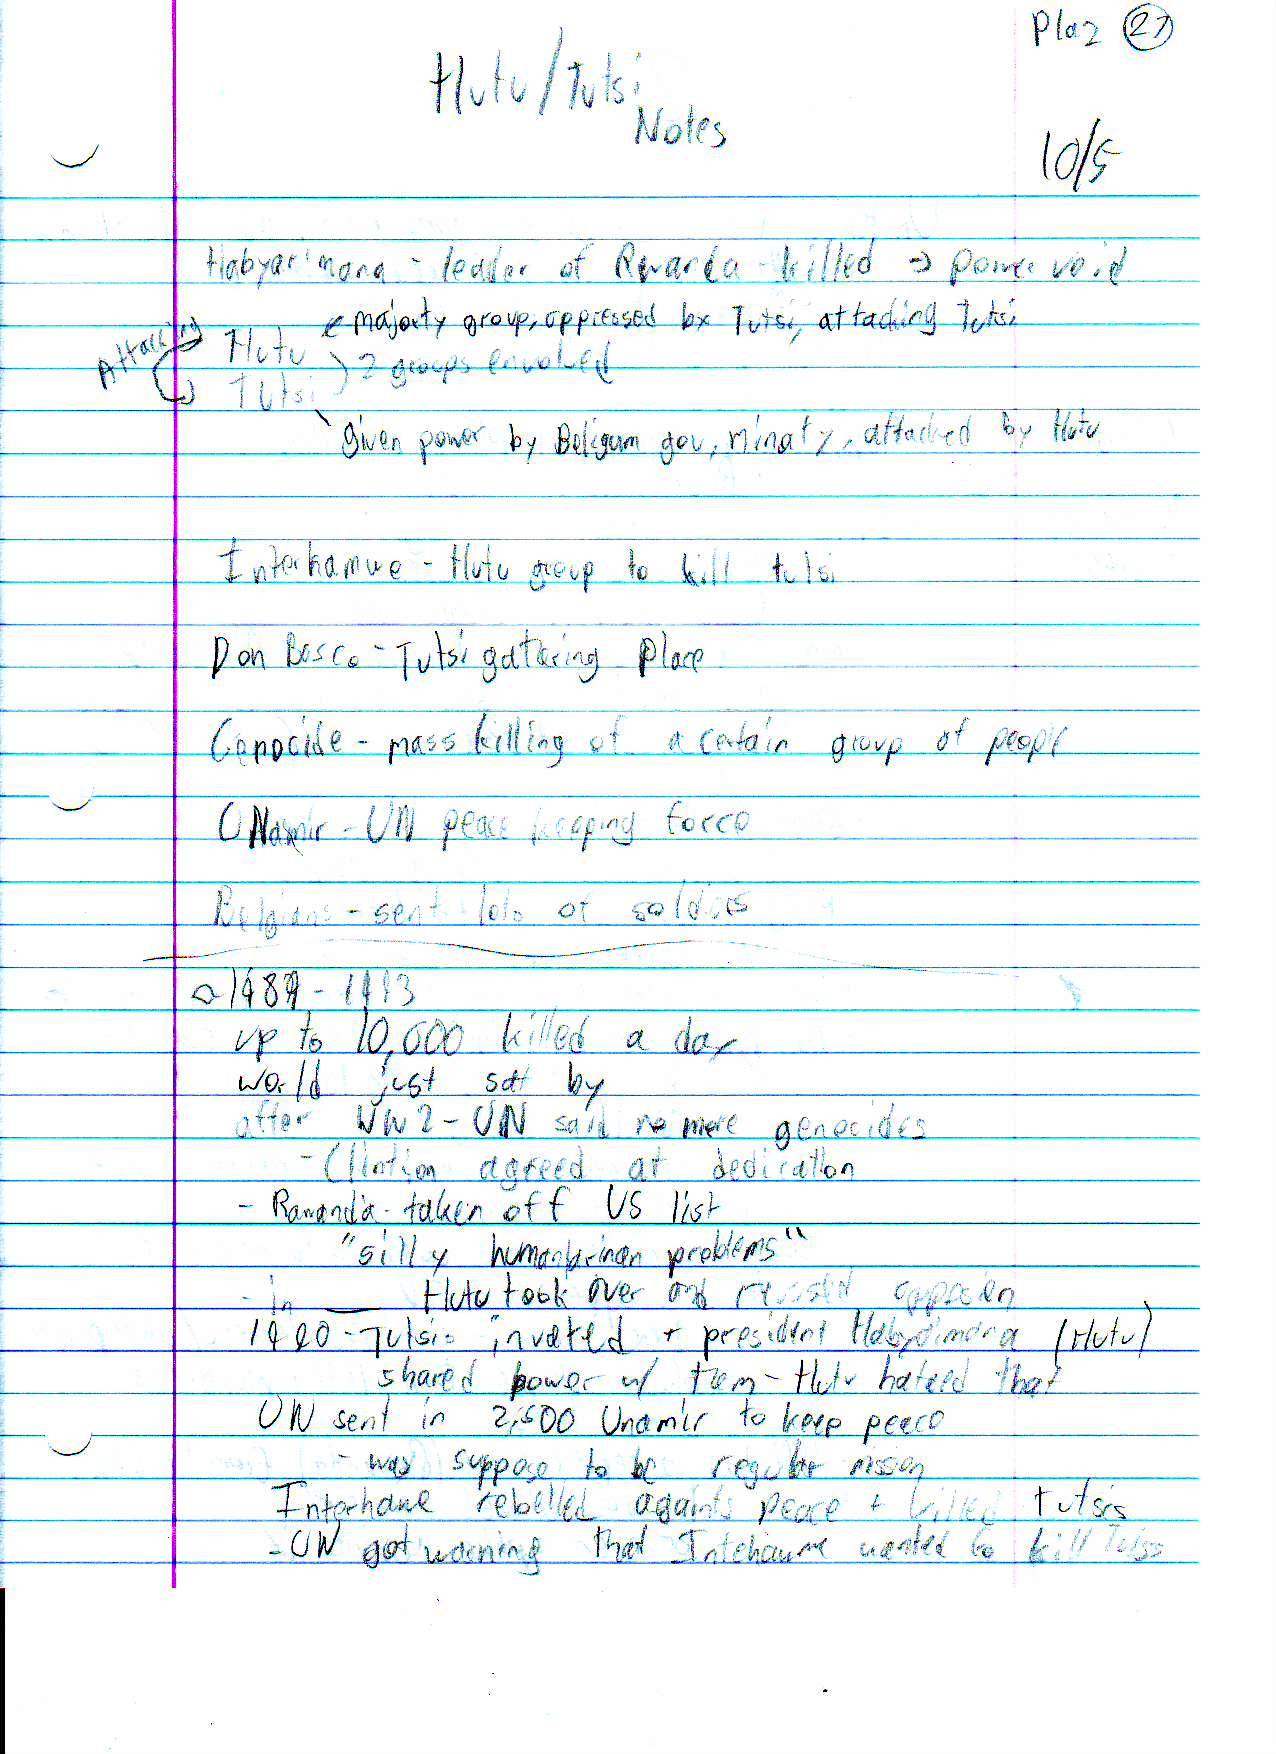 Pla2 27
Hutu/Tutsi
Notes
10/5
Habyarimana - leader of Rwanda - killed → power void
Attacking
majority group, oppressed by Tutsi, attacking Tutsi
Hutu
2 groups envolved
Tutsi
given power by Beligum gov, minaty, attacked by Hutu
Interhamwe - Hutu group to kill tutsi
Don Bosco - Tutsi gathering place
Genocide - mass killing of a certain group of people
UNamir - UN peace keeping force
Belgians - sent lots of soldiers
1993
up to 10,000 killed a day
world just sat by
after WW2 - UN said no more genocides
- Clintion agreed at dedication
- Rawanda - taken off US list
"silly humanitarinan problems"
- in ___ Hutu took over and
1990 - Tutsis invated + president Habydimana (Hutu)
shared power w/ them - Hutu hateed that
UN sent in 2,500 Unamir to keep peace
- was suppose to be regular mission
Interhawe rebelled againts peace + killed tutsis
- UN got warning that Intehaume wanted to kill Tutsis